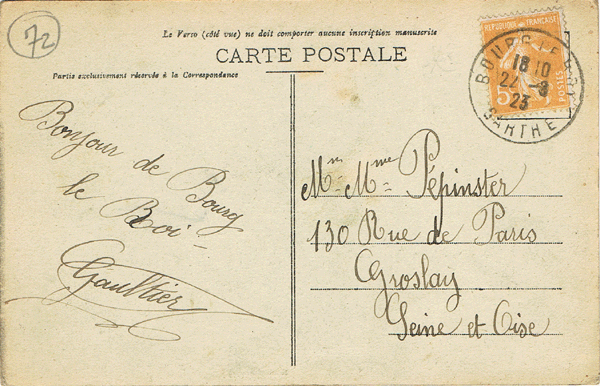 72
Le Verso (côté vue) ne doit comporter aucune inscription manuscrite
CARTE POSTALE
Partie exclusivement réservée à la Correspondance
REPUBLIQUE FRANÇAISE
POSTES
BOURG-LE-ROI
18 10
23
SARTHE
Bonjour de Bourg
le Roi -
Gaultier
Mr Mme Pépinster
130 Rue de Paris
Groslay
Seine et Oise